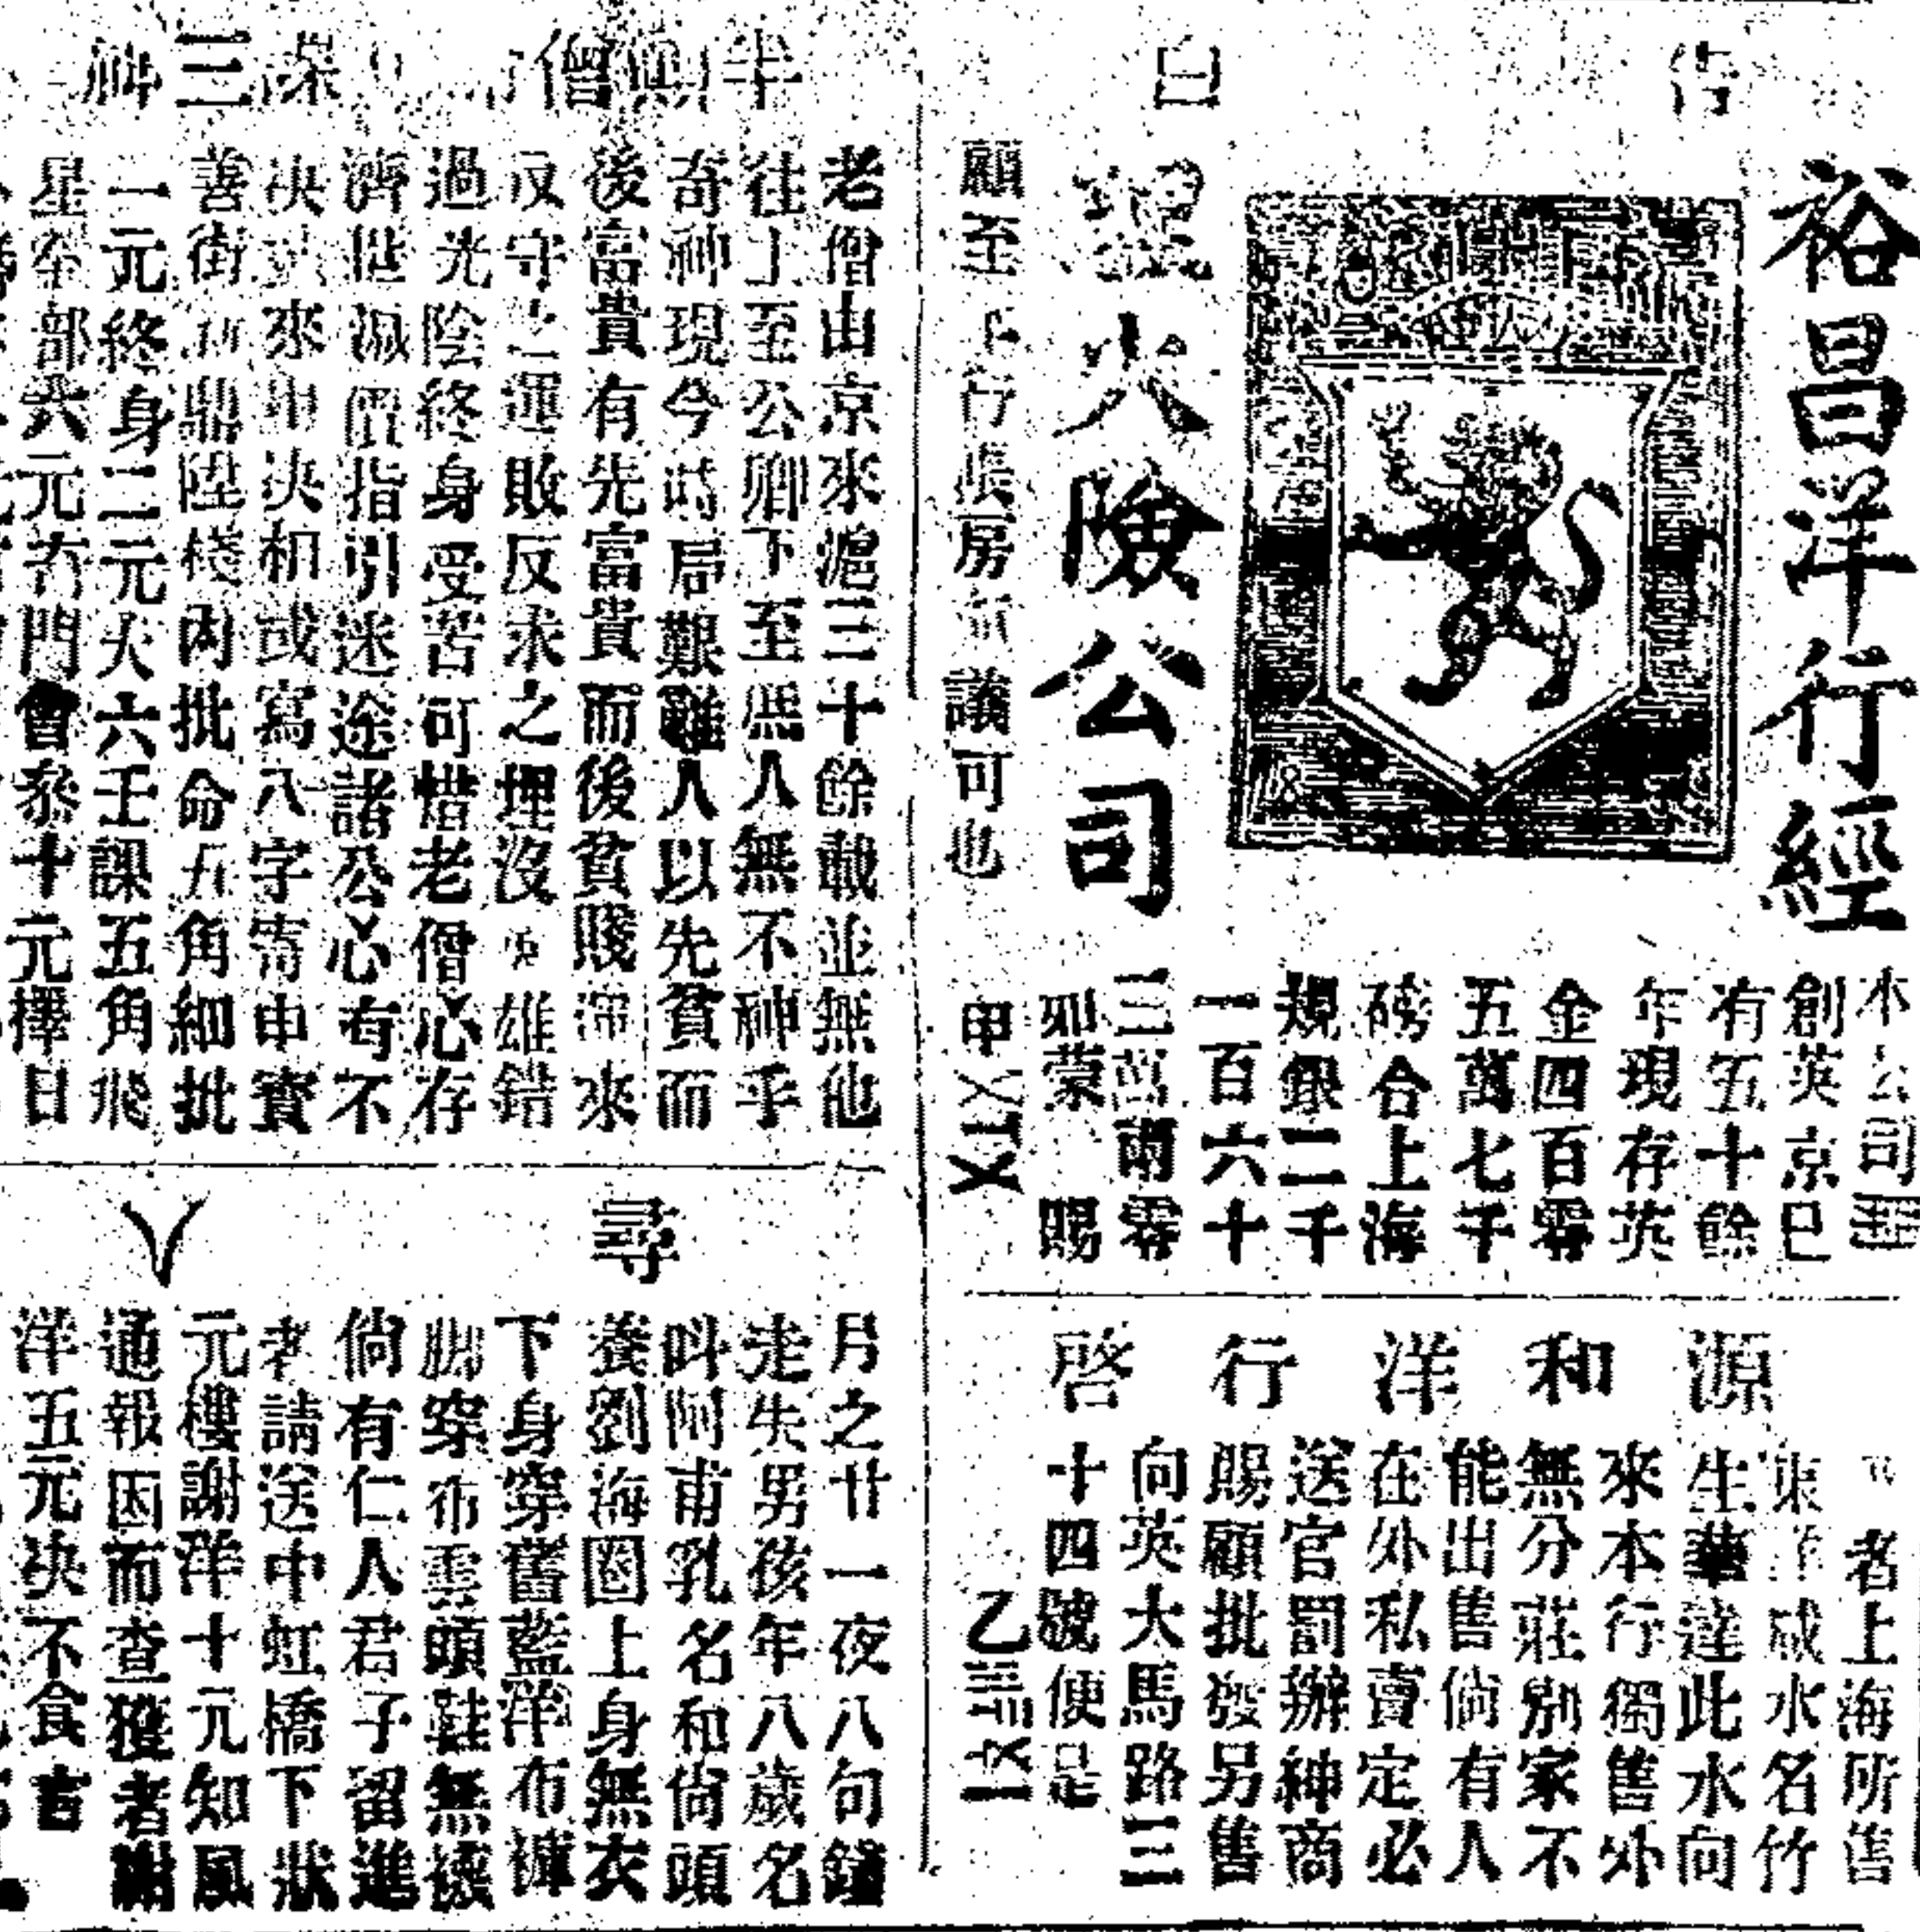 告白
裕昌洋行經
理火險公司
創英京已
有五十餘
年現存英
金四百零
五萬七千
磅合上海
規銀二千
一百六十
三萬兩零
如蒙 賜
顧至本行帳房 議可也
源和洋行啓
者上海所售
東洋咸水名竹
生華達此水向
來本行獨售外
無分莊別家不
能出售倘有人
在外私賣定必
送官罰辦紳商
賜顧批發另售
向英大馬路三
十四號便是
半 僧
三神
老僧由京來滬三十餘載並無他
往上至公卿下至庶人無不神乎
奇神現今時局艱難人以先貧而
後富貴有先富貴而後貧賤 來
反守之運敗反求之埋沒英雄錯
過光陰終身受苦可惜老僧心存
濟世減價指引迷途諸公心有不
決 來申決相或寫八字寄申寳
善街 鼎陞棧內批命五角細批
一元終身二元大六壬課五角飛
星全部六元 門會 十元擇日
尋人
月之廿一夜八句鐘
走失男孩年八歲名
叫阿甫乳名和尙頭
養劉海圈上身無衣
下身穿舊藍洋布褲
脚穿布雲頭鞋無襪
倘有仁人君子留進
者請送中虹橋下狀
元樓謝洋十元知風
通報因而查獲者謝
洋五元決不食言